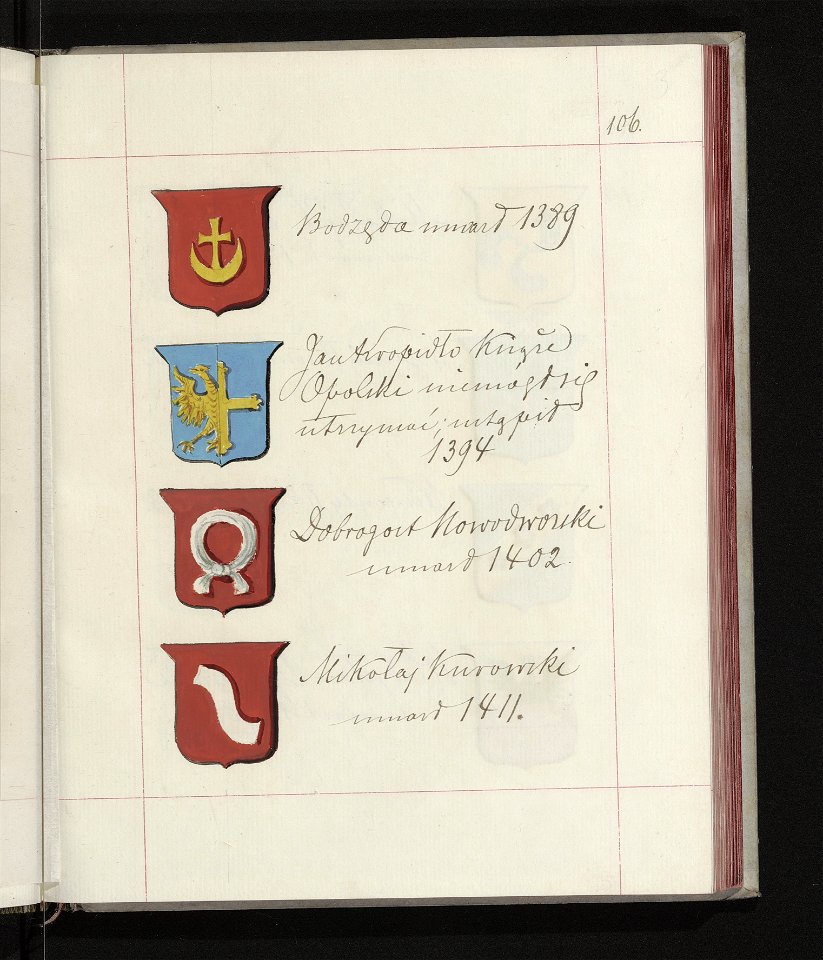 106.
Bodzęda umarł 1389
Jan Kropidło Książe
Opolski niemógł się
utrzymać; ustąpił
1394
Dobrogost Nowodworski
umarł 1402.
Mikołaj Kurowski
umarł 1411.